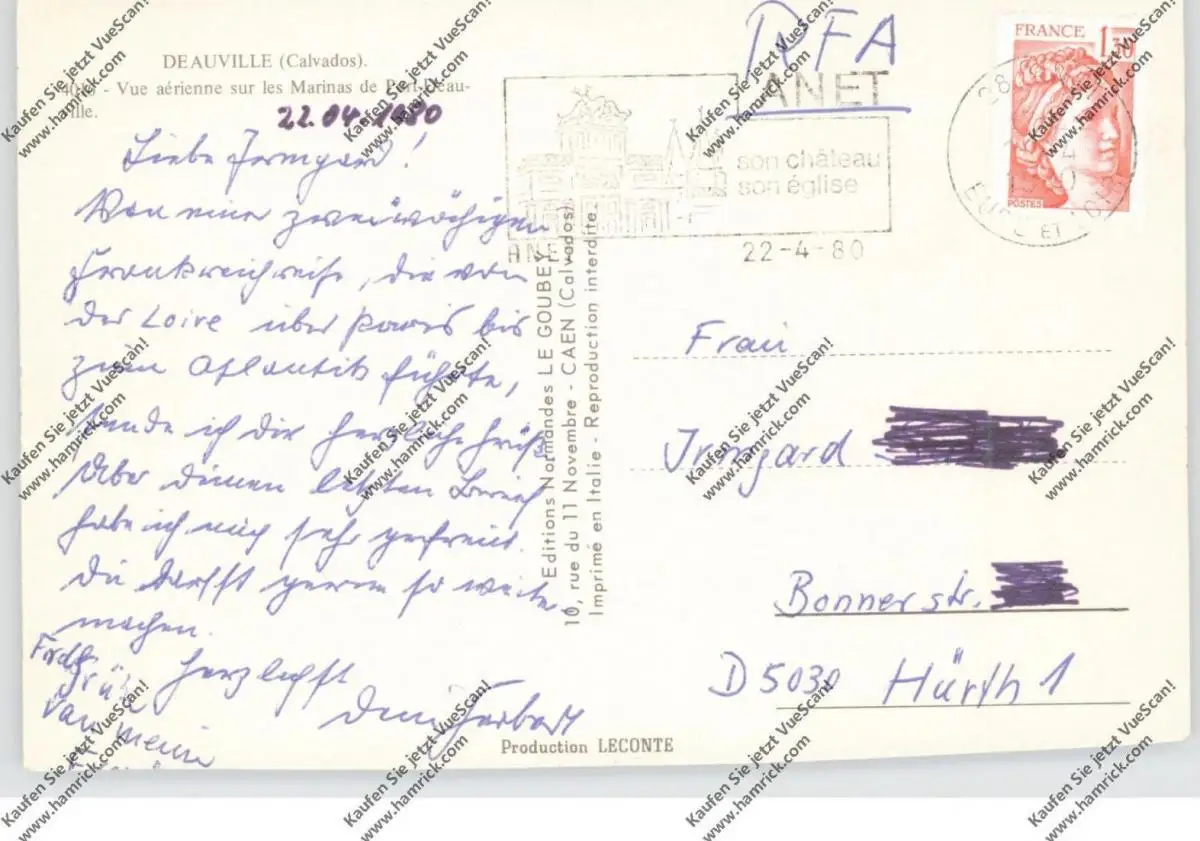 DEAUVILLE (Calvados).
- Vue aérienne sur les Marinas de Port-Deau-
ville.
22.04.1980
Liebe Irmgard!
Von einer zweiwöchigen
Frankreichreise, die von
der Loire über Paris bis
zum Atlantik führte,
sende ich dir herzliche Grüße
Über deinen letzten Bericht
habe ich mich sehr gefreut.
Du darfst gerne so weiter-
machen.
Herzlichst
dein Herbert
Grüße
von meiner
Editions Normandes LE GOUBEY
10, rue du 11 Novembre - CAEN (Calvados)
Imprimé en Italie - Reproduction interdite
Production LECONTE
RFA
ANET
son château
son église
ANET
22-4-80
28
EURE ET LOIR
FRANCE 1,30
POSTES
Frau
Irmgard
Bonnerstr.
D 5030 Hürth 1
Kaufen Sie jetzt VueScan!
www.hamrick.com